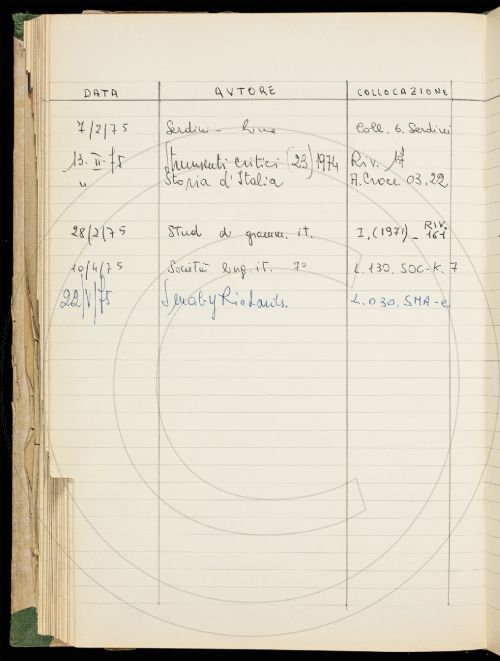 DATA AVTORE COLLOCAZIONE
7/2/75 Serdini - Coll. 6. Serdini
13. II. 75 Strumenti critici (23) 1974 Riv. 17
" Storia d'Italia A. Croce 03.22
28/2/75 Stud di gramm. it. I, (1971) - RIV. 161
10/4/75 Società ling. it. 7° L. 130. SOC-K. 7
22/V/75 L. 030. SMA-e